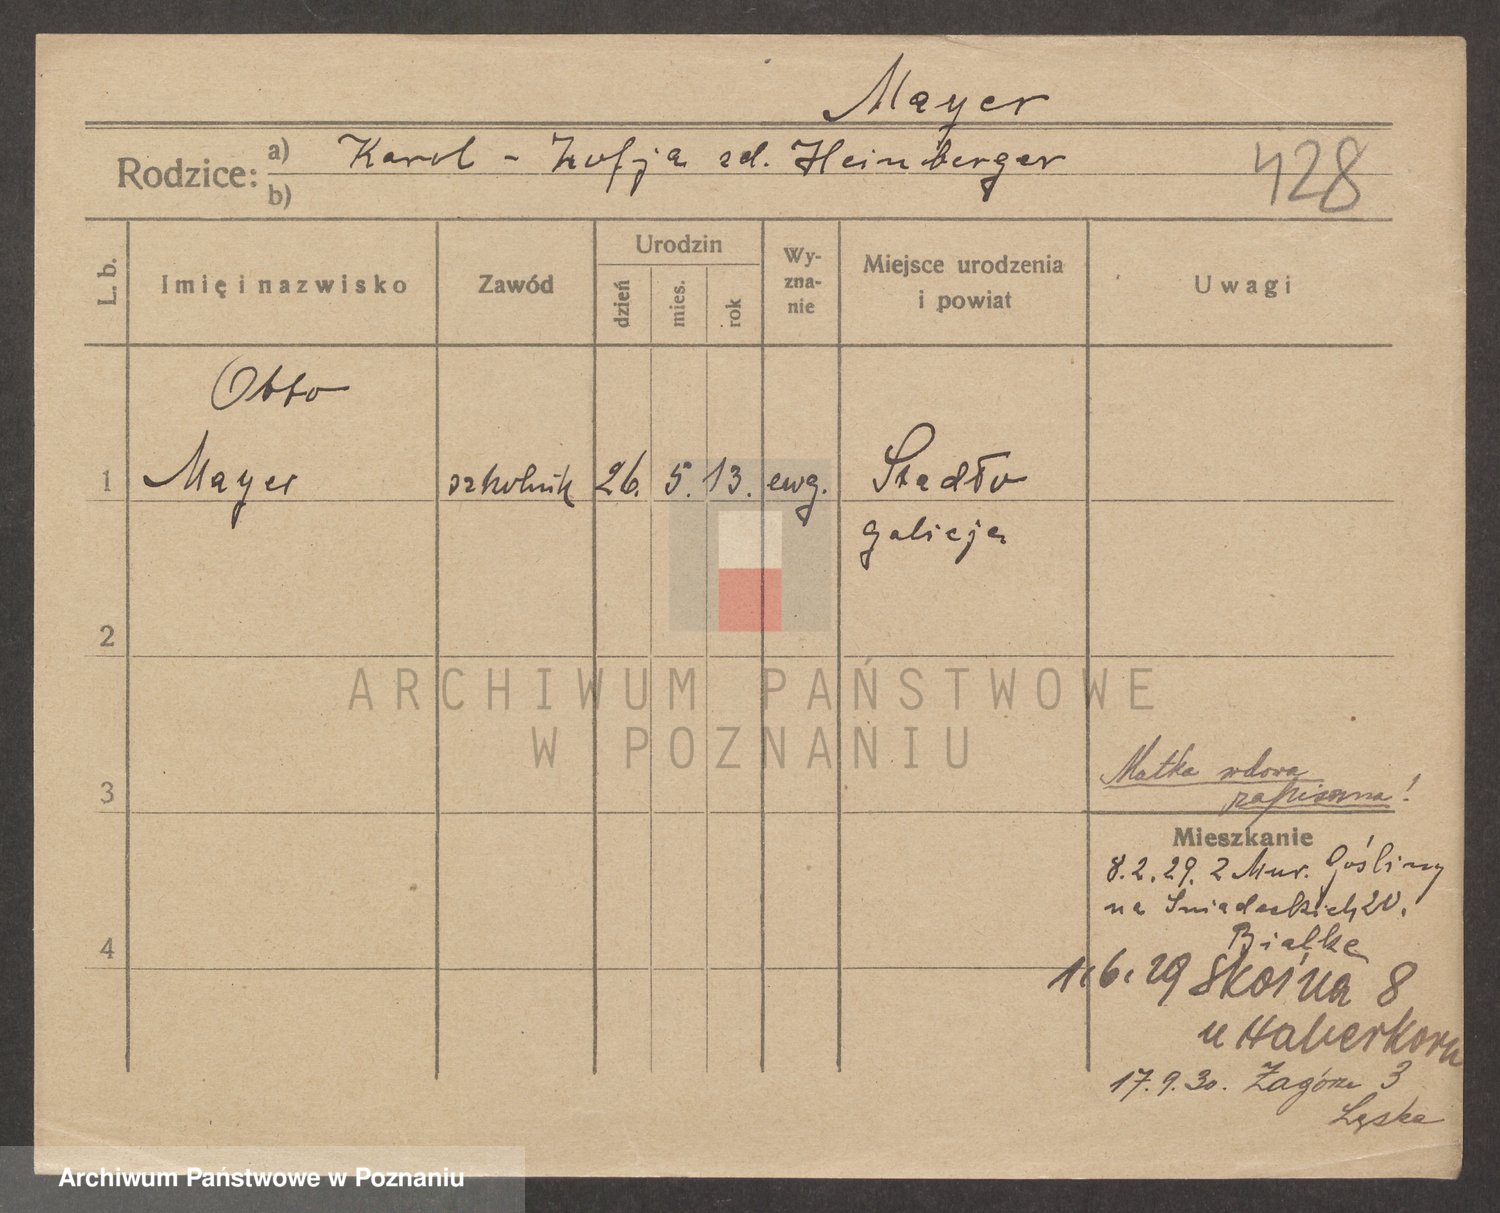 Mayer
Rodzice: a) Karol - Zofja zd. Heinberger
b)
428
L. b.
Imię i nazwisko
Zawód
Urodzin
dzień
mies.
rok
Wy-
zna-
nie
Miejsce urodzenia
i powiat
Uwagi
Otto
1 Mayer szkolnik 26. 5. 13. ewg. Stadło
galicja
2
ARCHIWUM PAŃSTWOWE
W POZNANIU
3
Matka wdowa
zapisana!
Mieszkanie
8.2.29. z Mur. Gośliny
na Sniadeckich 20.
Bialke
4
1.6.29 Skośna 8
u Haberkorn
17.9.30. Zagórze 3
Łęska
Archiwum Państwowe w Poznaniu